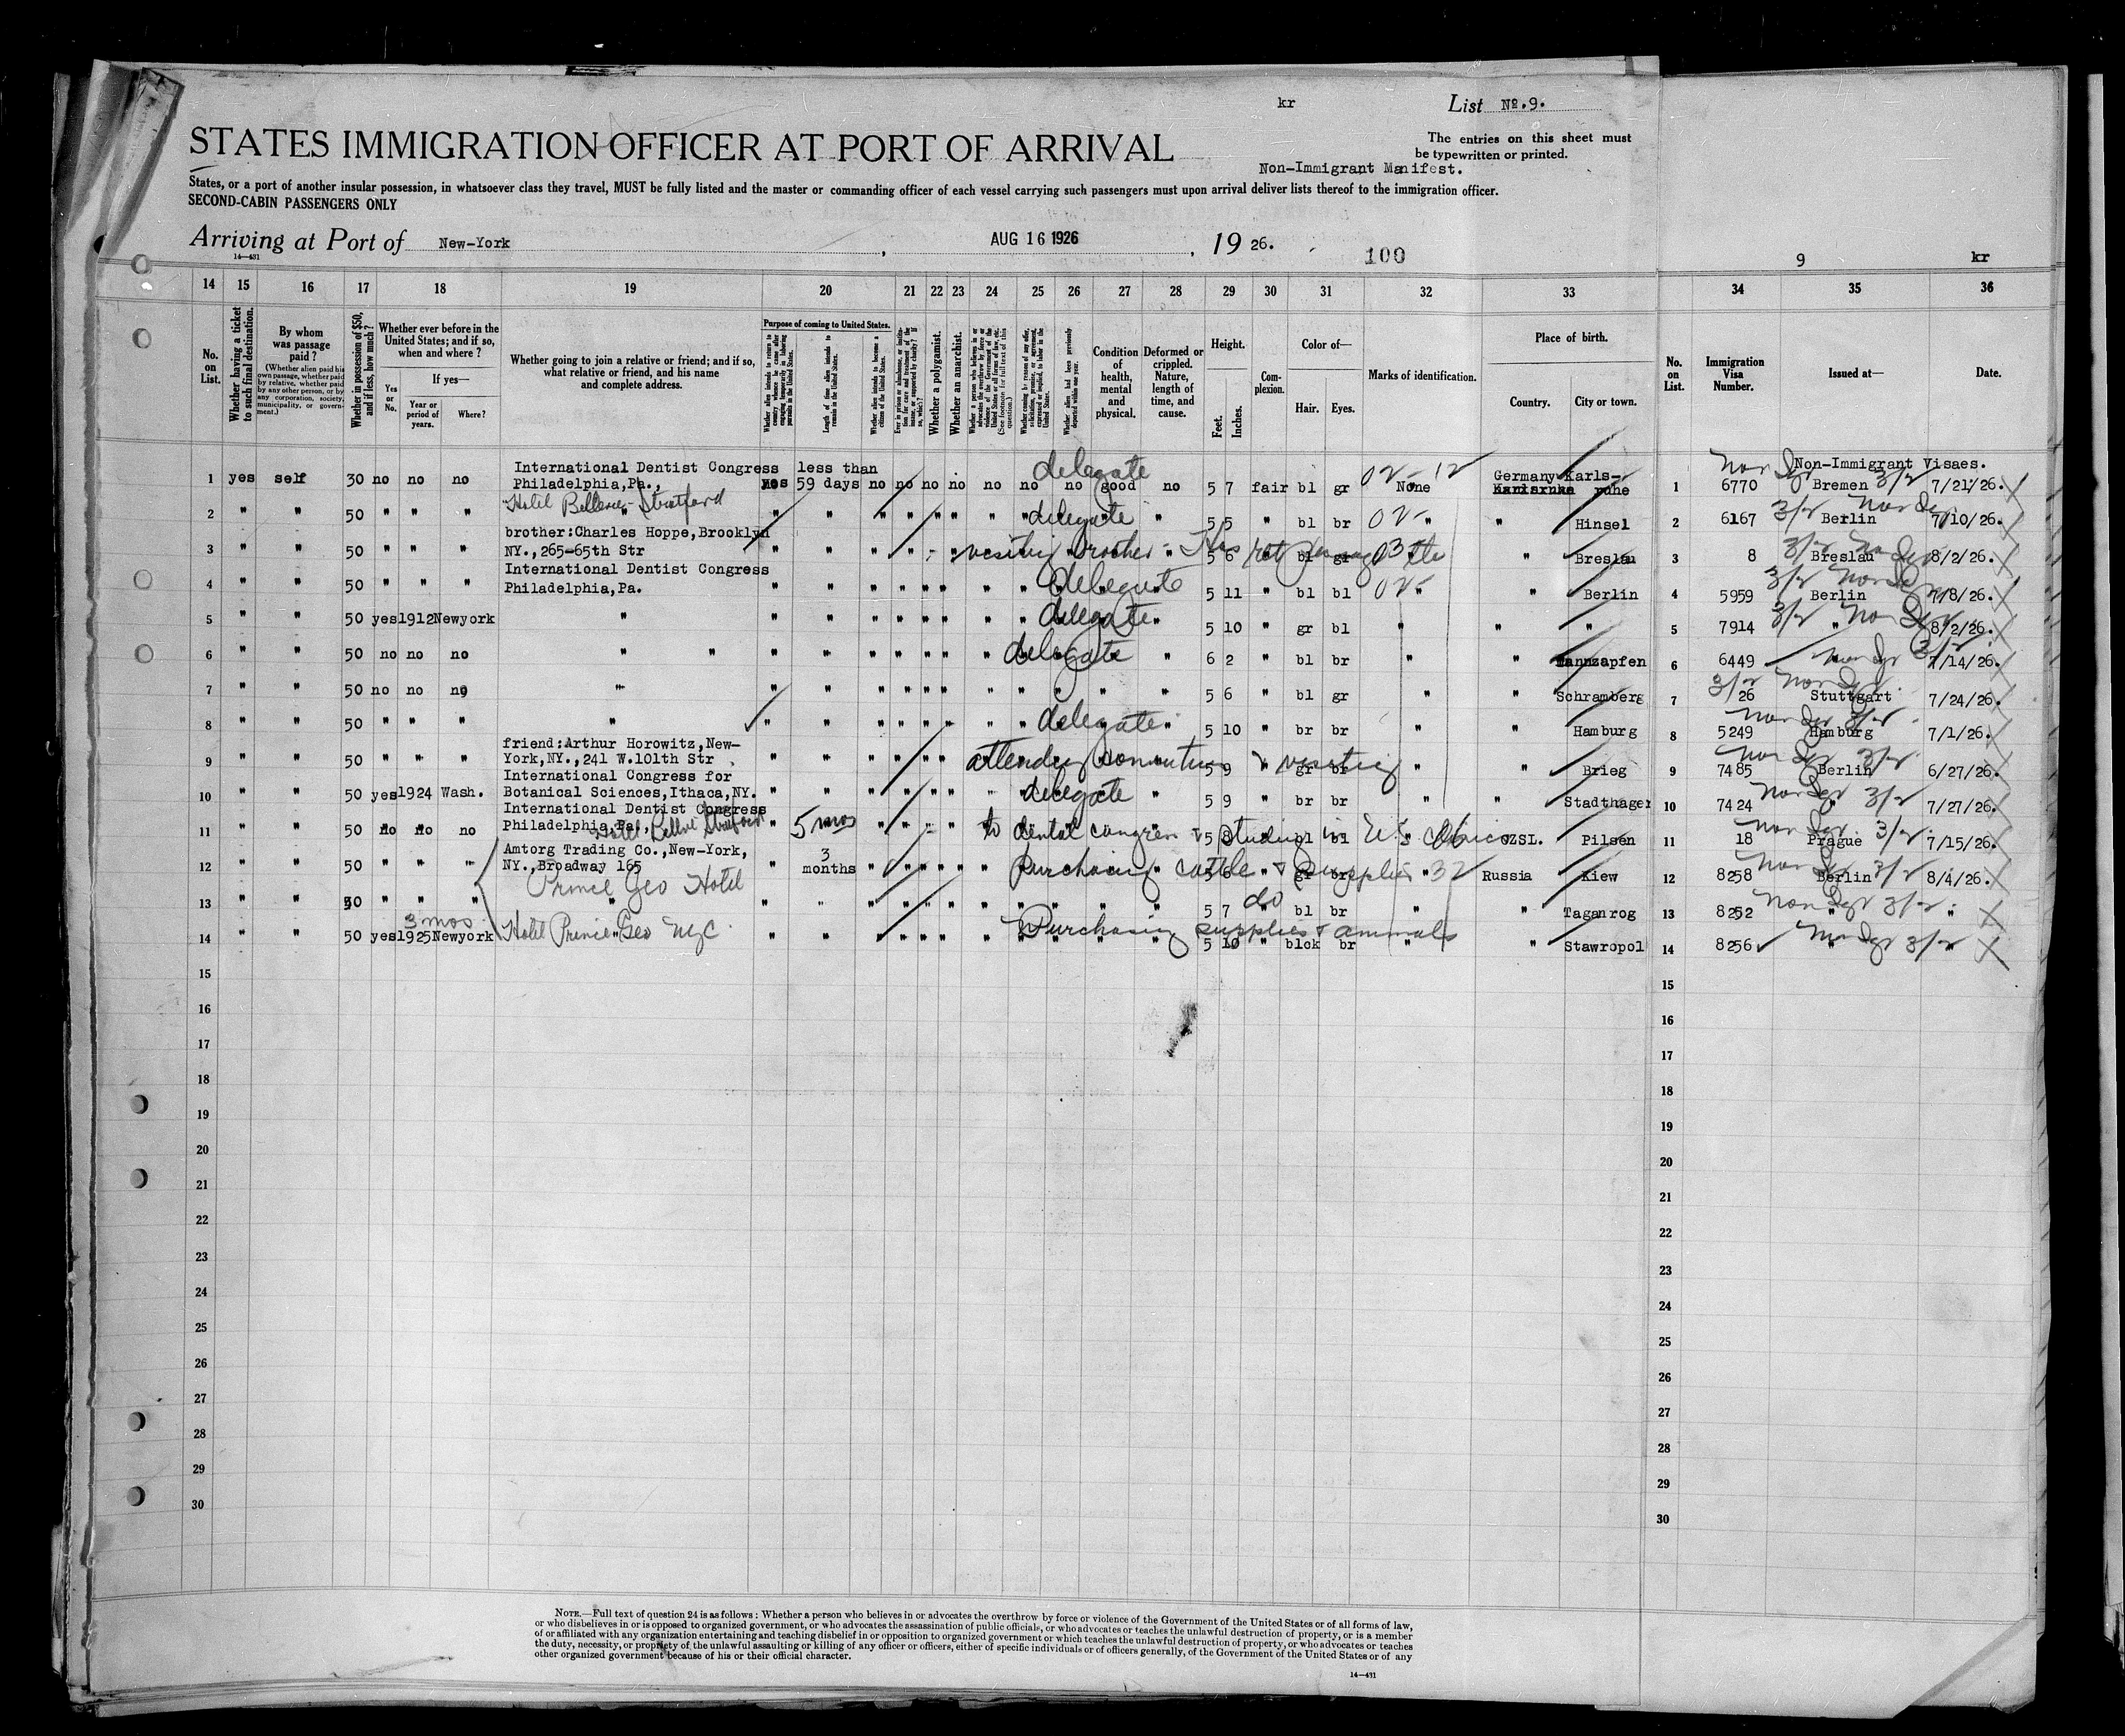 kr
List No. 9.
STATES IMMIGRATION OFFICER AT PORT OF ARRIVAL
The entries on this sheet must
be typewritten or printed.
Non-Immigrant Manifest.
States, or a port of another insular possession, in whatsoever class they travel, MUST be fully listed and the master or commanding officer of each vessel carrying such passengers must upon arrival deliver lists thereof to the immigration officer.
SECOND-CABIN PASSENGERS ONLY
Arriving at Port of New-York, AUG 16 1926, 19 26.
14—431
100
9 kr
14 15 16 17 18 19 20 21 22 23 24 25 26 27 28 29 30 31 32 33 34 35 36
No. on List.
Whether having a ticket to such final destination.
By whom was passage paid?
(Whether alien paid his own passage, whether paid by relative, whether paid by any other person, or by any corporation, society, municipality, or government.)
Whether in possession of $50, and if less, how much?
Whether ever before in the United States; and if so, when and where?
Yes or No.
If yes—
Year or period of years.
Where?
Whether going to join a relative or friend; and if so, what relative or friend, and his name and complete address.
Purpose of coming to United States.
Whether alien intends to return to country whence he came after engaging temporarily in laboring pursuits in the United States.
Length of time alien intends to remain in the United States.
Whether alien intends to become a citizen of the United States.
Whether a polygamist.
Whether an anarchist.
(See footnote for full text of this question.)
Whether alien had been previously deported within one year.
Condition of health, mental and physical.
Deformed or crippled. Nature, length of time, and cause.
Height.
Feet. Inches.
Complexion.
Color of—
Hair. Eyes.
Marks of identification.
Place of birth.
Country. City or town.
No. on List.
Immigration Visa Number.
Issued at—
Date.
Non-Immigrant Visaes.
1 yes self 30 no no no International Dentist Congress Philadelphia,Pa., yes less than 59 days no no no no no no no good no 5 7 fair bl gr None Germany Karls-ruhe 1 6770 Bremen 7/21/26.
delegate 02- 12
Hotel Bellevue Stratford
2 " " 50 " " " " " " " delegate " 5 5 " bl br 02- " " Hinsel 2 6167 Berlin 7/10/26.
3 " " 50 " " " brother:Charles Hoppe,Brooklyn NY.,265-65th Str " " " " visiting brother 5 6 bl gr " Breslau 3 8 Breslau 8/2/26.
4 " " 50 " " " International Dentist Congress Philadelphia,Pa. " " " " " " delegate " 5 11 " bl bl 02- " " Berlin 4 5959 Berlin 7/8/26.
5 " " 50 yes 1912 Newyork " " " " " " " delegate " 5 10 " gr bl " " " 5 7914 " 8/2/26.
6 " " 50 no no no " " " " " " " " delegate " 6 2 " bl br " " Tannzapfen 6 6449 7/14/26.
7 " " 50 no no no " " " " " " " " " " " " 5 6 " bl gr " " Schramberg 7 26 Stuttgart 7/24/26.
8 " " 50 " " " " " " " " " " " delegate " 5 10 " br br " " Hamburg 8 5249 Hamburg 7/1/26.
9 " " 50 " " " friend:Arthur Horowitz,New-York,NY.,241 W.101th Str " " " " " " attending convention & visiting 5 9 " gr br " " Brieg 9 7485 Berlin 6/27/26.
10 " " 50 yes 1924 Wash. International Congress for Botanical Sciences,Ithaca,NY. " " " " " " delegate " 5 9 " br br " " Stadthagen 10 7424 " 7/27/26.
11 " " 50 no no no International Dentist Congress Philadelphia,Pa., " 5 mos " " " to dental congress & studying in U.S. 5 8 bl bl CZSL. Pilsen 11 18 Prague 7/15/26.
12 " " 50 " " " Amtorg Trading Co.,New-York, NY.,Broadway 165 " 3 months " " " " " Purchasing cattle & supplies 5 6 " gr br " 32 Russia Kiew 12 8258 Berlin 8/4/26.
Prince Geo Hotel
13 " " 50 " " " " " " " " " " " " " " " do 5 7 bl br " " Taganrog 13 8252 " "
3 mos
14 " " 50 yes 1925 Newyork Hotel Prince Geo NYC. " " " " " " " Purchasing supplies & animals 5 10 " blck br " " Stawropol 14 8256 " "
15 15
16 16
17 17
18 18
19 19
20 20
21 21
22 22
23 23
24 24
25 25
26 26
27 27
28 28
29 29
30 30
NOTE.—Full text of question 24 is as follows: Whether a person who believes in or advocates the overthrow by force or violence of the Government of the United States or of all forms of law,
or who disbelieves in or is opposed to organized government, or who advocates the assassination of public officials, or who advocates or teaches the unlawful destruction of property, or is a member
of or affiliated with any organization entertaining and teaching disbelief in or opposition to organized government or which teaches the unlawful destruction of property, or who advocates or teaches
the duty, necessity, or propriety of the unlawful assaulting or killing of any officer or officers, either of specific individuals or of officers generally, of the Government of the United States or of any
other organized government because of his or their official character.
14—431